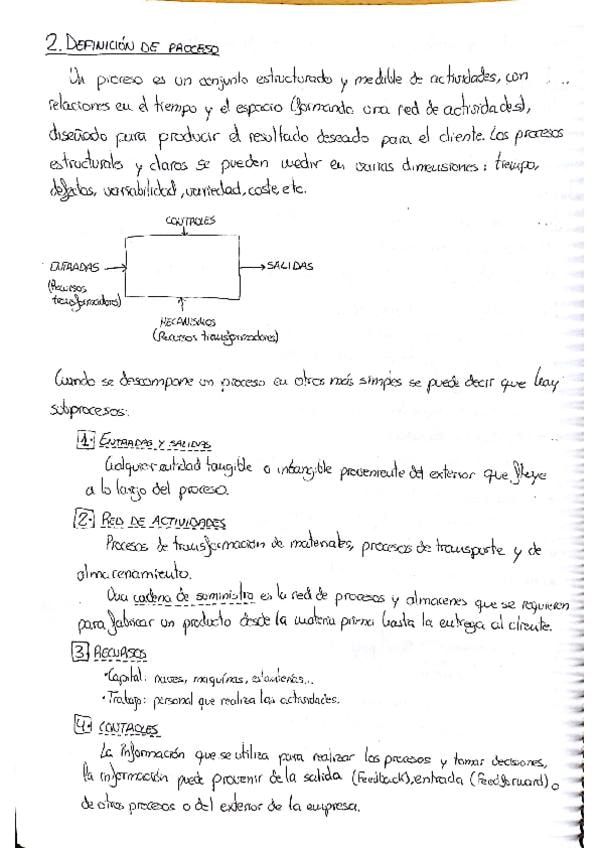 2. DEFINICIÓN DE PROCESO
Un proceso es un conjunto estructurado y medible de actividades, con
relaciones en el tiempo y el espacio (formando una red de actividades),
diseñado para producir el resultado deseado para el cliente. Los procesos
estructurales y claros se pueden medir en varias dimensiones: tiempo,
defectos, variabilidad, variedad, coste, etc.
CONTROLES
ENTRADAS
SALIDAS
(Recursos
transformadores)
MECANISMOS
(Recursos transformadores)
Cuando se descompone un proceso en otros más simples se puede decir que hay
subprocesos:
1. ENTRADAS Y SALIDAS
Cualquier entidad tangible o intangible proveniente del exterior que fluye
a lo largo del proceso.
2. RED DE ACTIVIDADES
Procesos de transformación de materiales, procesos de transporte y de
almacenamiento.
Una cadena de suministro es la red de procesos y almacenes que se requieren
para fabricar un producto desde la materia prima hasta la entrega al cliente.
3. RECURSOS
· Capital: naves, maquinas,
· Trabajo: personal que realiza las actividades.
4. CONTROLES
La información que se utiliza para realizar los procesos y tomar decisiones,
la información puede provenir de la salida (Feedback), entrada (Feedforward) o
de otros procesos o del exterior de la empresa.